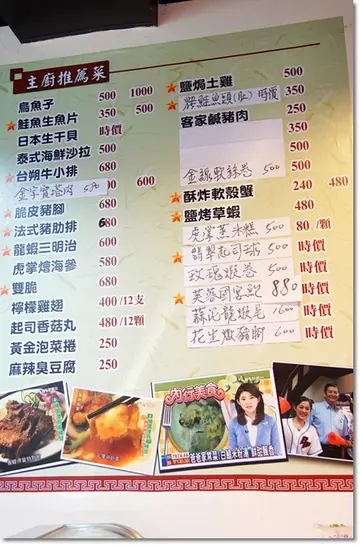 主廚推薦菜
烏魚子 500 1000
鮭魚生魚片 350 500
日本生干貝 時價
泰式海鮮沙拉 500
台朔牛小排 680
金字寶塔肉 580 600
脆皮豬腳 680
法式豬肋排 680
龍蝦三明治 600
虎掌燴海參 580
雙脆 680
檸檬雞翅 400/12支
起司香菇丸 480/12顆
黃金泡菜捲 250
麻辣臭豆腐 250
鹽焗土雞 500
時價
客家鹹豬肉 350
350
500
金線軟絲卷 500 450
酥炸軟殼蟹 240
鹽烤草蝦 350
虎掌蒸米糕 500 80/顆
翡翠起司球 500 時價
玫瑰蝦卷 500 時價
880 時價
蒜泥龍蝦尾 1600 時價
花生燉豬腳 600 時價
內行美食
爸爸家常菜!白鯧米粉湯 鮮甜飄香